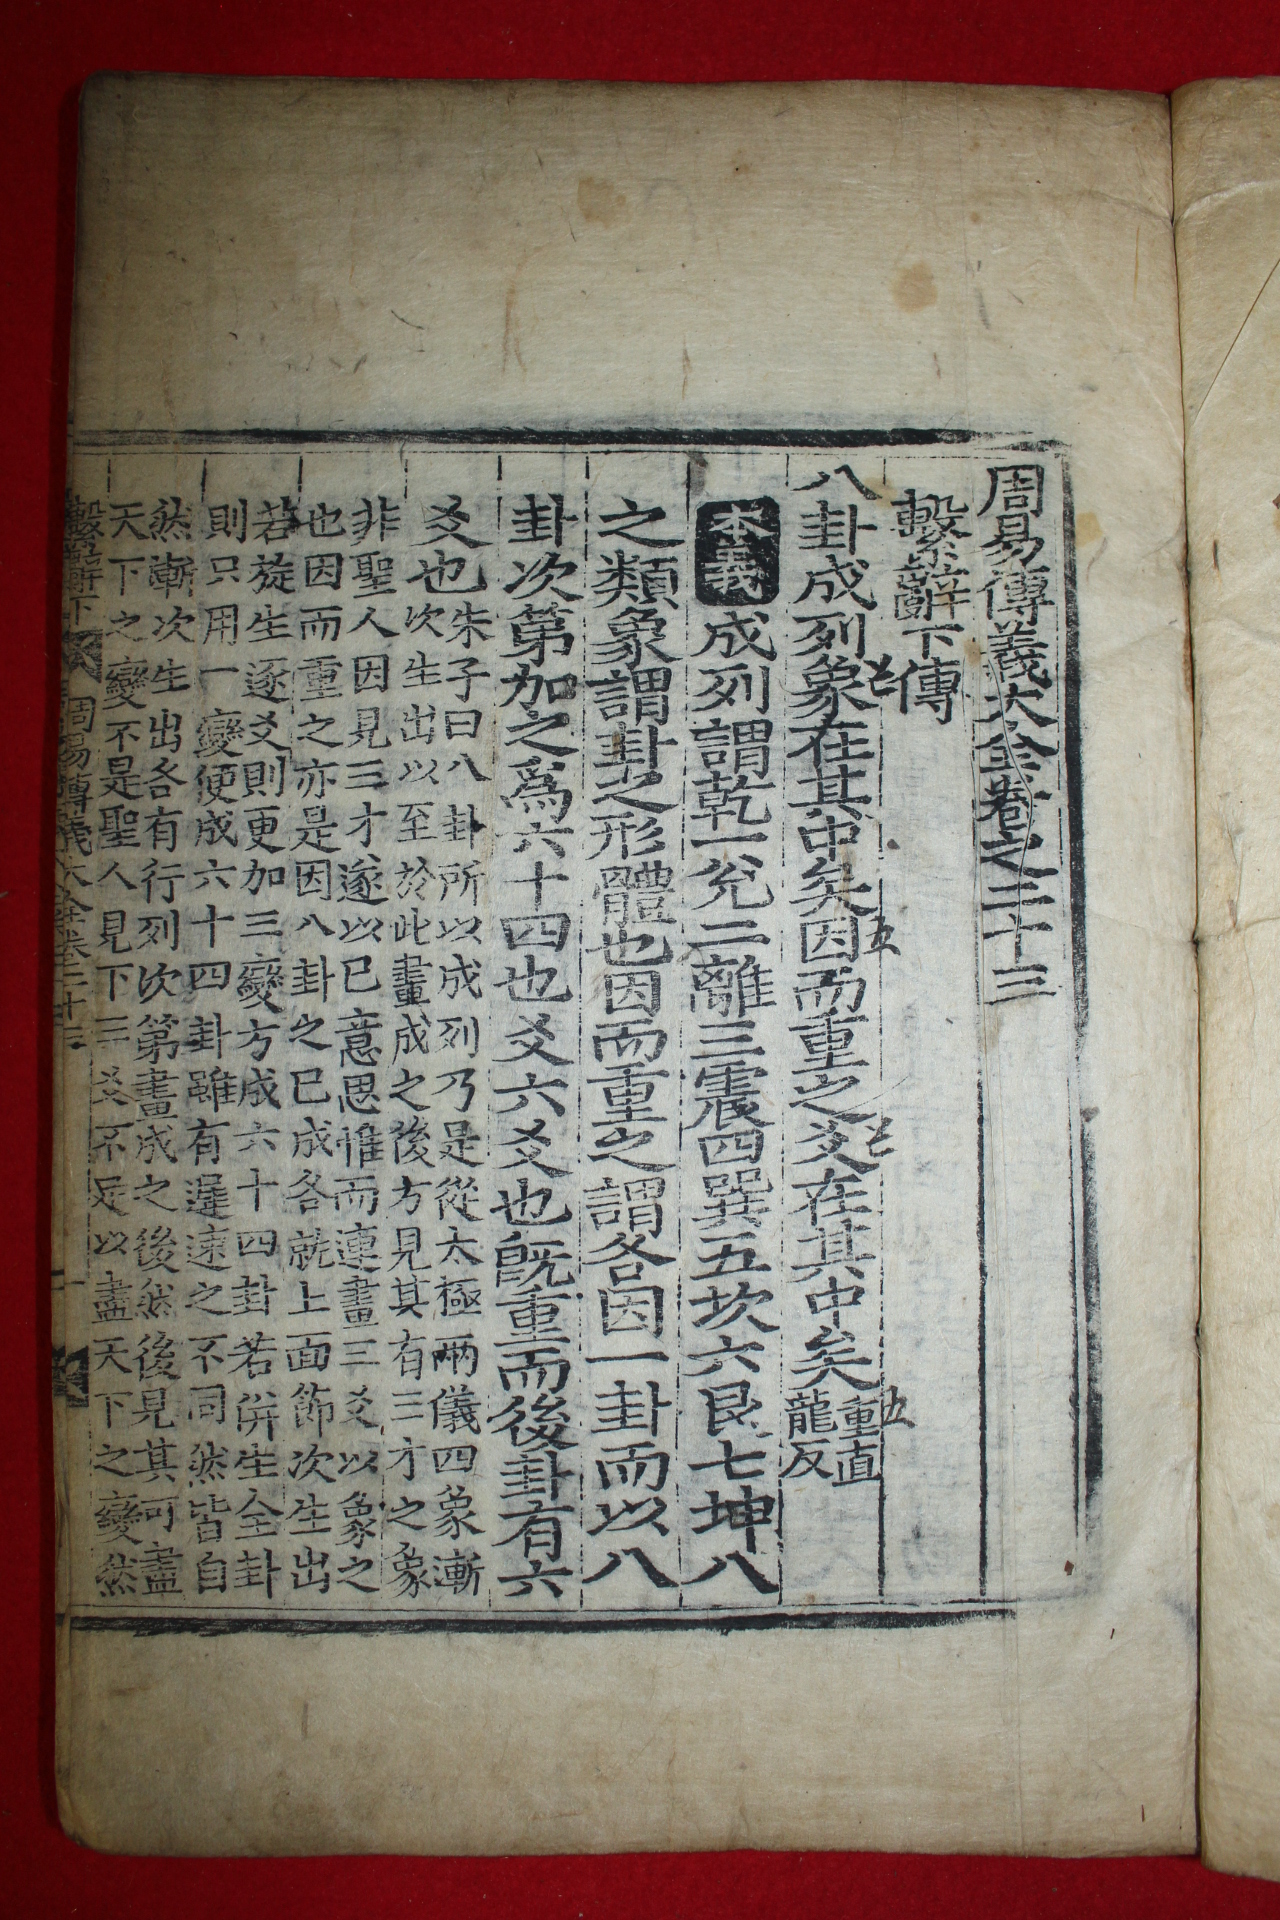 周易傳義大全卷之二十三
繫辭下傳
八卦成列象在其中矣因而重之爻在其中矣重直龍反
五
五
本義成列謂乾一兌二離三震四巽五坎六艮七坤八
之類象謂卦之形體也因而重之謂各因一卦而以八
卦次第加之爲六十四也爻六爻也旣重而後卦有六
爻也
朱子曰八卦所以成列乃是從太極兩儀四象漸
次生出以至於此畫成之後方見其有三才之象
非聖人因見三才遂以己意思惟而連畫三爻以象之
也因而重之亦是因八卦之已成各就上面節次生出
若旋生逐爻則更加三變方成六十四卦若併生全卦
則只用一變便成六十四卦雖有遲速之不同然皆自
然漸次生出各有行列次第畫成之後然後見其可盡
天下之變不是聖人見下三爻不足以盡天下之變然
繫辭下
周易傳義大全卷二十三
一